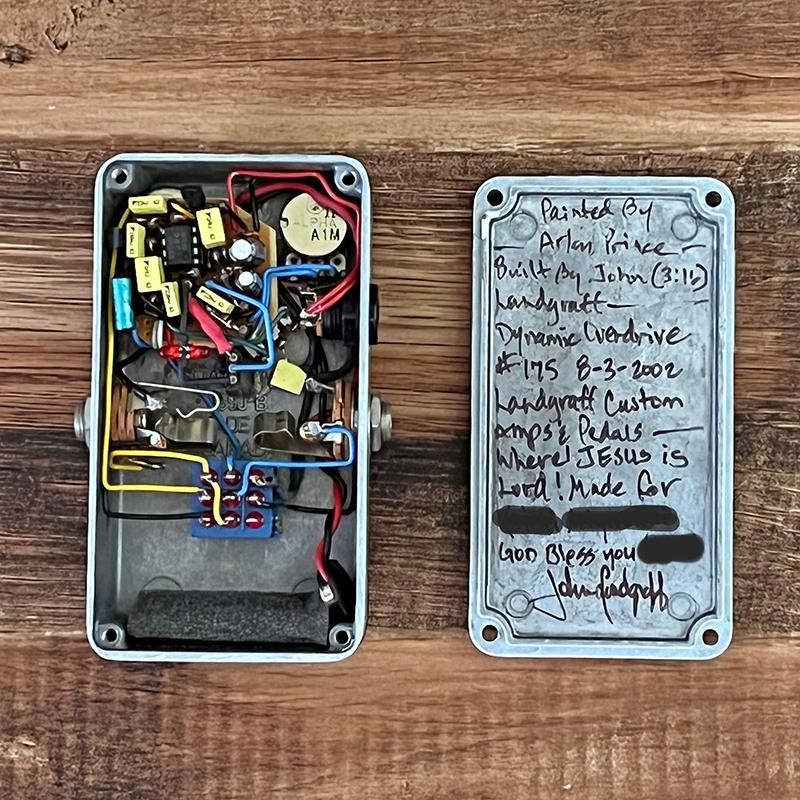 ALPHA
A1M
Painted By
— Arlon Prince —
Built By John (3:16)
Landgraff —
Dynamic Overdrive
#175 8-3-2002
Landgraff Custom
Amps & Pedals —
Where JESUS is
Lord! Made for
God Bless you
John Landgraff